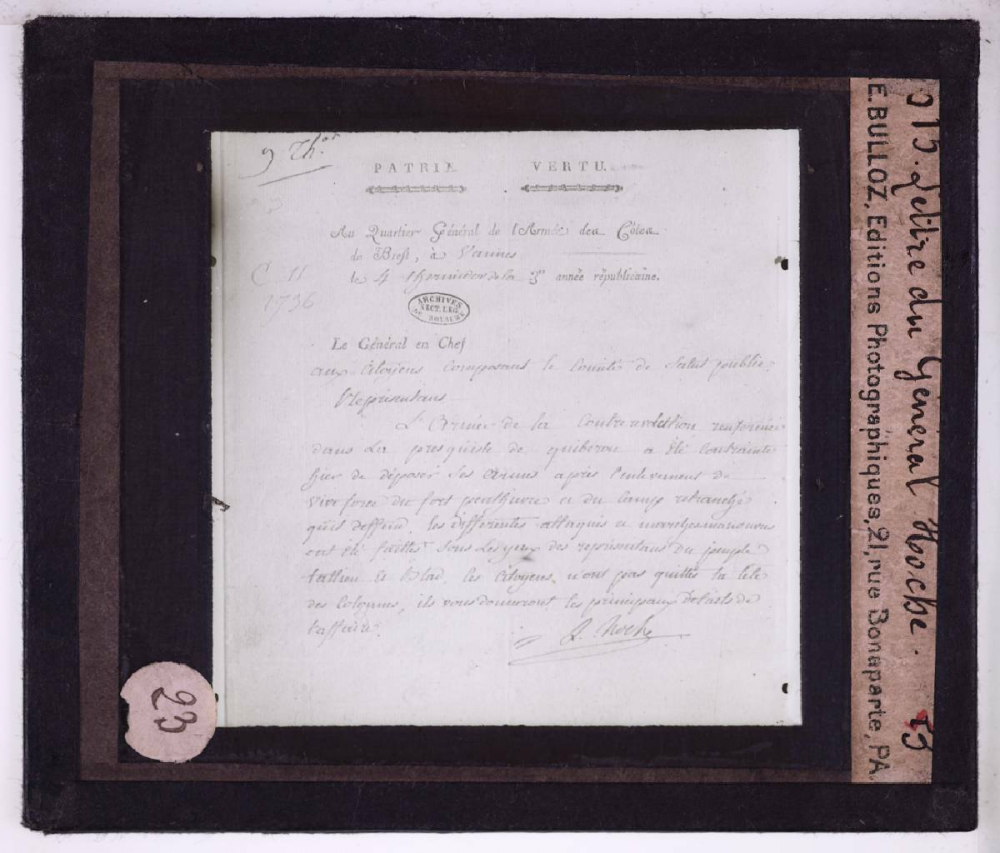 9 Th.or
PATRIE VERTU.
Au Quartier Général de l'Armée des Côtes
de Brest, à Vannes
le 4 thermidor de la 3e année républicaine.
C 11
1736
ARCHIVES
SECT. LEG.
DU ROYAUME
Le Général en Chef
aux Citoyens composant le Comité de Salut public
Représentans
L'Armée de la Contrerevolution renfermée
dans la presqu'isle de quiberon a été contrainte
hier de déposer ses armes après l'enlevement de
vive force du fort penthievre et du camp retranché
qu'il deffend. les différentes attaques et
ont été faittes sous les yeux des représentans du peuple
tallien et Blad. les Citoyens n'ont pas quittés la tête
des Colonnes, ils vous donneront les principaux détails de
l'affaire.
L. Hoche
23
915. Lettre du Général Hoche. 23
E. BULLOZ, Editions Photographiques, 21, rue Bonaparte, PA